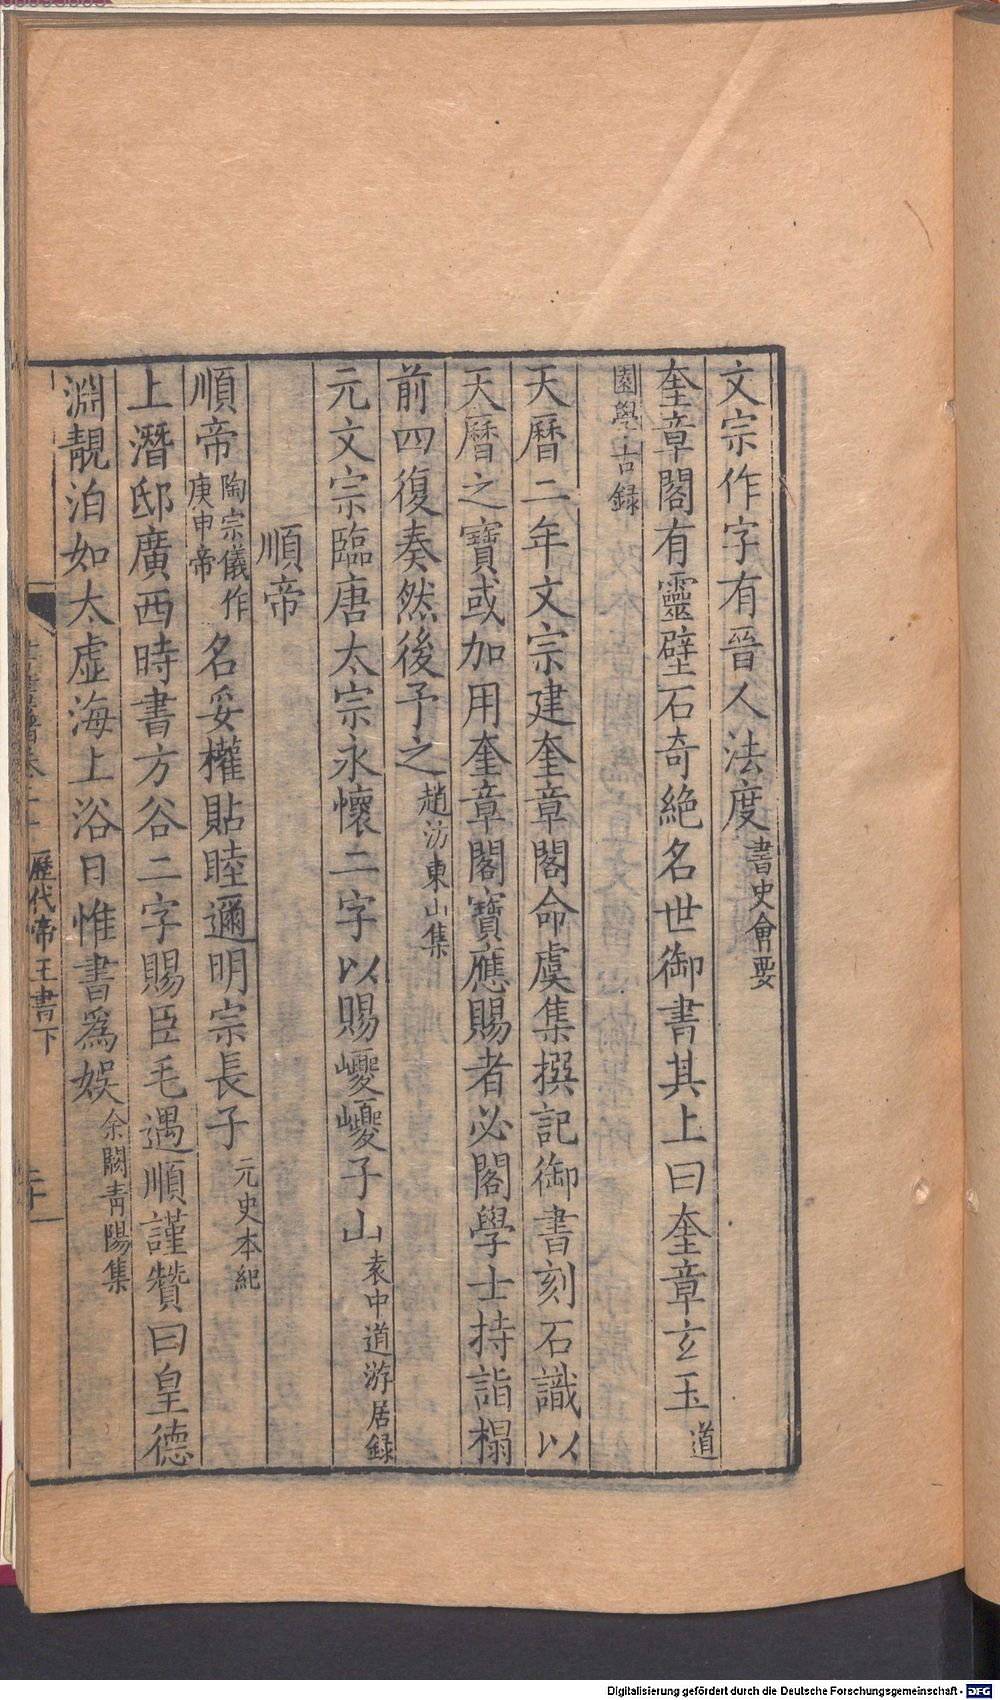 文宗作字有晉人法度書史會要
奎章閣有靈壁石奇絶名世御書其上曰奎章玄玉道
園學古録
天曆二年文宗建奎章閣命虞集撰記御書刻石識以
天曆之寶或加用奎章閣寶應賜者必閣學士持詣榻
前四復奏然後予之趙汸東山集
元文宗臨唐太宗永懷二字以賜巙巙子山袁中道游居録
順帝
順帝陶宗儀作庚申帝名妥權貼睦邇明宗長子元史本紀
上潛邸廣西時書方谷二字賜臣毛遇順謹贊曰皇德
淵靚泊如太虚海上浴日惟書爲娱余闕青陽集
歷代帝王書下
Digitalisierung gefördert durch die Deutsche Forschungsgemeinschaft - DFG